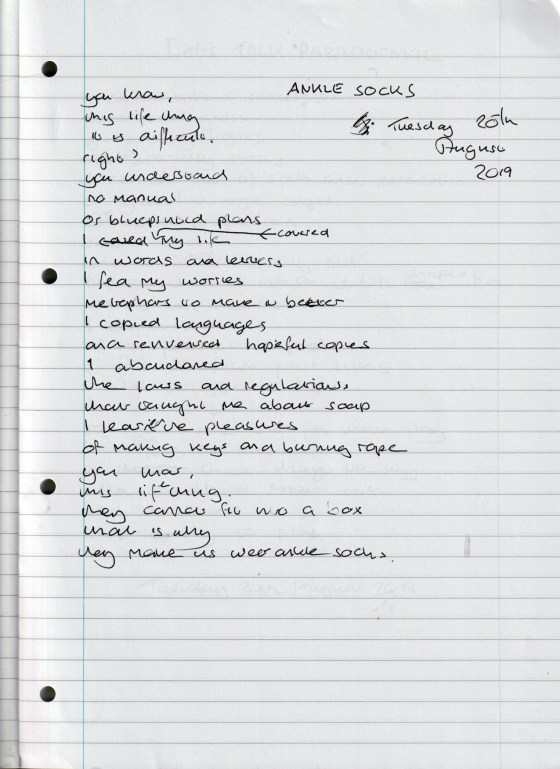 ANKLE SOCKS
Tuesday 20th
August
2019
you know,
this life thing
it is difficult.
right?
you understand
no manual
or blueprinted plans
I covered my life
in words and letters
I fed my worries
metaphors to make it better
I copied languages
and reinvented hopeful copies
I abandoned
the laws and regulations,
that taught me about soap
I learnt the pleasures
of making keys and burning rope
you know,
this life thing.
they cannot fit into a box
that is why
they make us wear ankle socks.